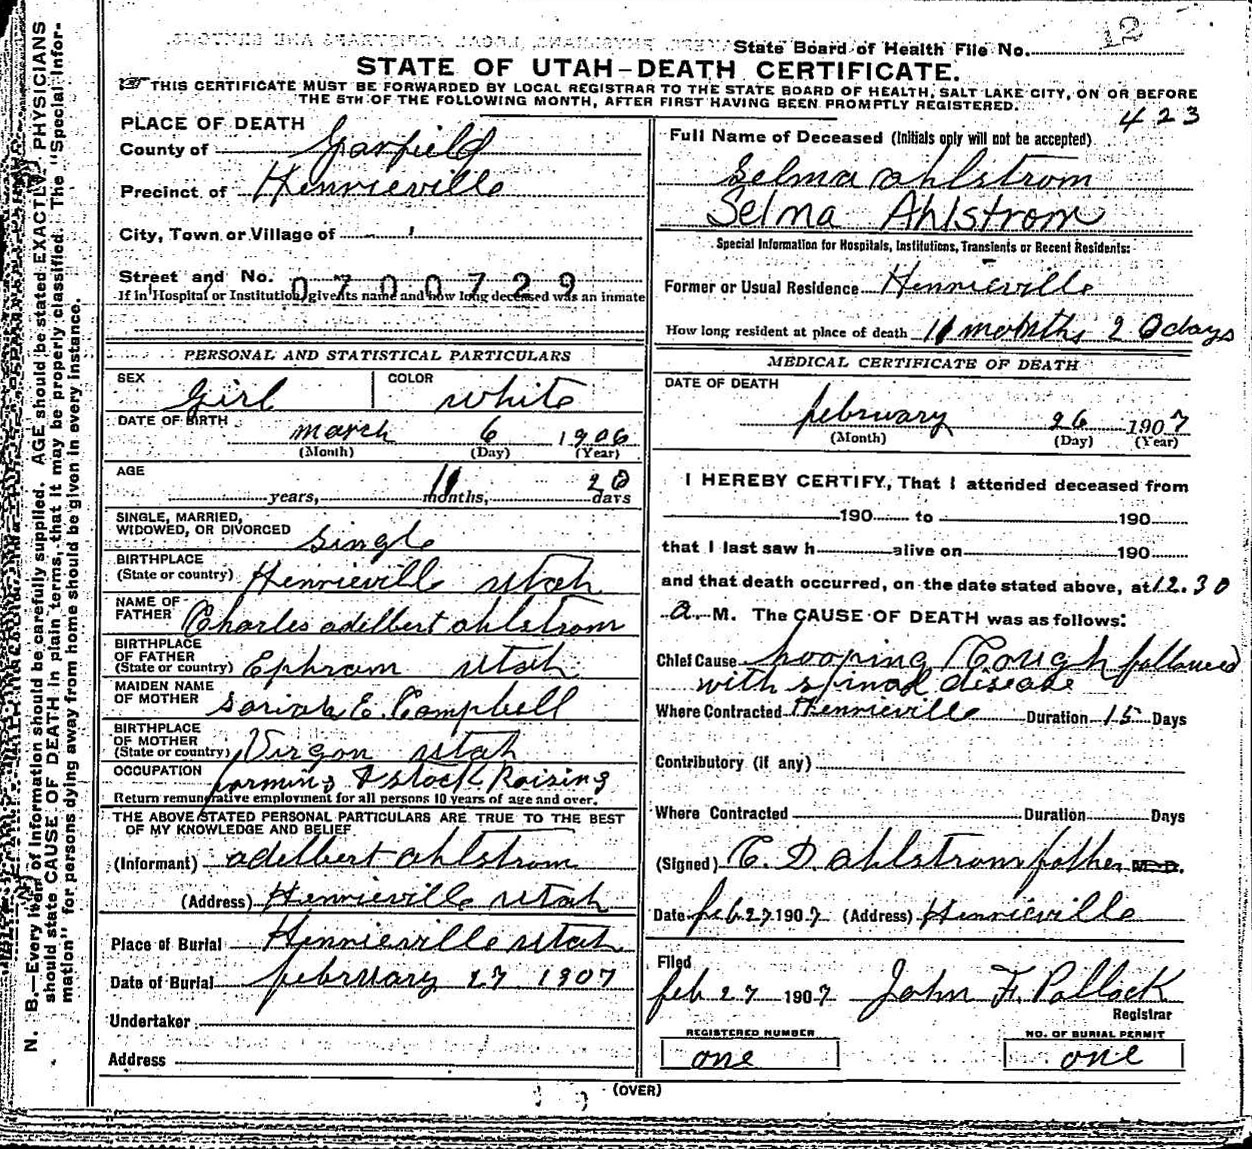 12
State Board of Health File No.
STATE OF UTAH–DEATH CERTIFICATE.
THIS CERTIFICATE MUST BE FORWARDED BY LOCAL REGISTRAR TO THE STATE BOARD OF HEALTH, SALT LAKE CITY, ON OR BEFORE
THE 5TH OF THE FOLLOWING MONTH, AFTER FIRST HAVING BEEN PROMPTLY REGISTERED.
423
N. B.—Every item of information should be carefully supplied. AGE should be stated EXACTLY. PHYSICIANS
should state CAUSE OF DEATH in plain terms, that it may be properly classified. The "Special Infor-
mation" for persons dying away from home should be given in every instance.
PLACE OF DEATH
County of Garfield
Precinct of Henrieville
City, Town or Village of
Street and No. 0700729
If in Hospital or Institution, give its name and how long deceased was an inmate
PERSONAL AND STATISTICAL PARTICULARS
SEX Girl COLOR white
DATE OF BIRTH march 6 1906
(Month) (Day) (Year)
AGE years, 11 months, 20 days
SINGLE, MARRIED,
WIDOWED, OR DIVORCED single
BIRTHPLACE
(State or country) Henrieville utah
NAME OF
FATHER Charles adelbert ahlstrom
BIRTHPLACE
OF FATHER
(State or country) Ephram utah
MAIDEN NAME
OF MOTHER Sariah E. Campbell
BIRTHPLACE
OF MOTHER
(State or country) Virgon utah
OCCUPATION farming & stock Raising
Return remunerative employment for all persons 10 years of age and over.
THE ABOVE STATED PERSONAL PARTICULARS ARE TRUE TO THE BEST
OF MY KNOWLEDGE AND BELIEF
(Informant) adelbert ahlstrom
(Address) Henrieville utah
Place of Burial Henrieville utah
Date of Burial february 27 1907
Undertaker
Address
Full Name of Deceased (Initials only will not be accepted)
Selma ahlstrom
Selma Ahlstrom
Special Information for Hospitals, Institutions, Transients or Recent Residents:
Former or Usual Residence Henrieville
How long resident at place of death 11 months 20 days
MEDICAL CERTIFICATE OF DEATH
DATE OF DEATH
february 26 1907
(Month) (Day) (Year)
I HEREBY CERTIFY, That I attended deceased from
190 to 190
that I last saw h alive on 190
and that death occurred, on the date stated above, at 12.30
a. M. The CAUSE OF DEATH was as follows:
Chief Cause hooping Cough followed
with spinal disease
Where Contracted Henrieville Duration 15 Days
Contributory (if any)
Where Contracted Duration Days
(Signed) C. D. ahlstrom father M. D.
Date feb. 27 1907 (Address) Henrieville
Filed
feb 27 1907 John F. Pollock
Registrar
REGISTERED NUMBER
one
NO. OF BURIAL PERMIT
one
(OVER)